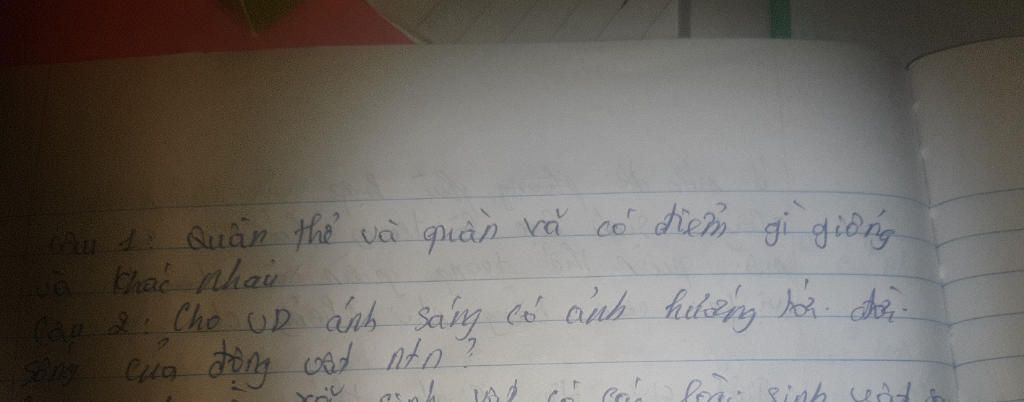 Câu 1: Quần thể và quần xã có điểm gì giống
và khác nhau
Câu 2: Cho VD ánh sáng có ảnh hưởng tới đời
sống của động vật ntn?
sinh vật có các loài sinh vật